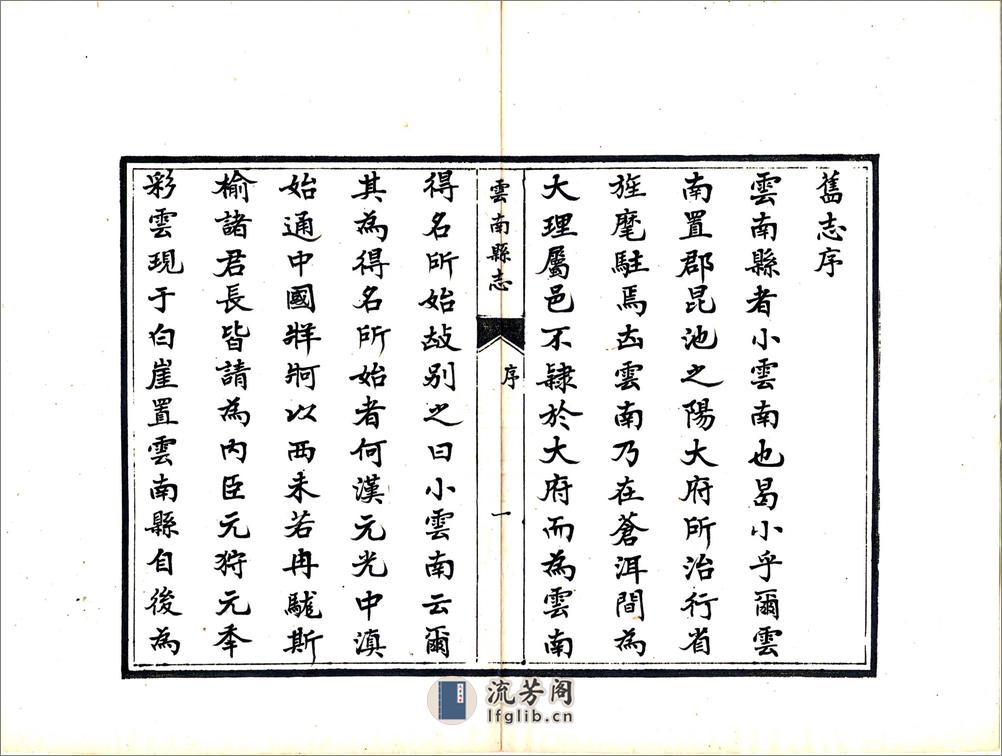 舊志序
雲南縣者小雲南也曷小乎爾雲
南置郡昆池之陽大府所治行省
旌麾駐焉玆雲南乃在蒼洱間為
大理屬邑不隷於大府而為雲南
雲南縣志
序
一
得名所始故别之曰小雲南云爾
其為得名所始者何漢元光中滇
始通中國牂牁以西未若冉駹斯
榆諸君長皆請為内臣元狩元年
彩雲現于白崖置雲南縣自後為
流芳阁
lfglib.cn